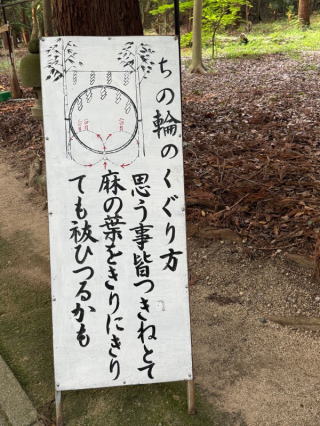 ちの輪のくぐり方
思う事皆つきねとて
麻の葉をきりにきり
ても祓ひつるかも